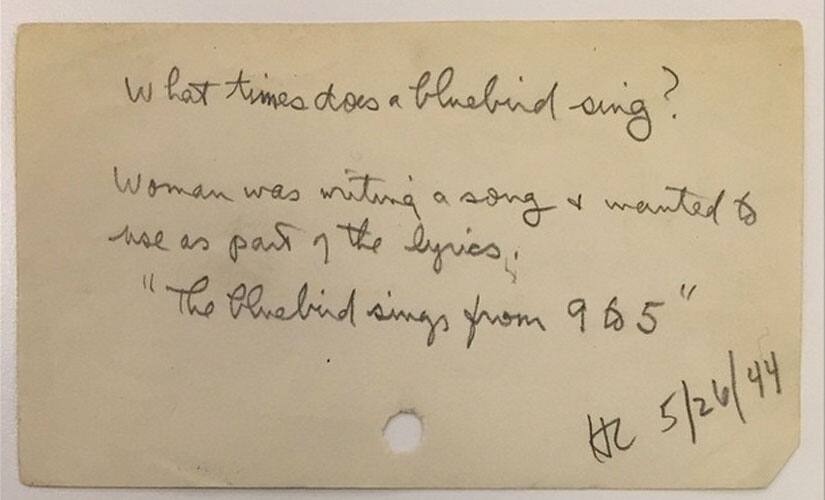 What times does a bluebird sing?
Woman was writing a song & wanted to
use as part of the lyrics,
"The bluebird sings from 9 to 5"
5/26/44